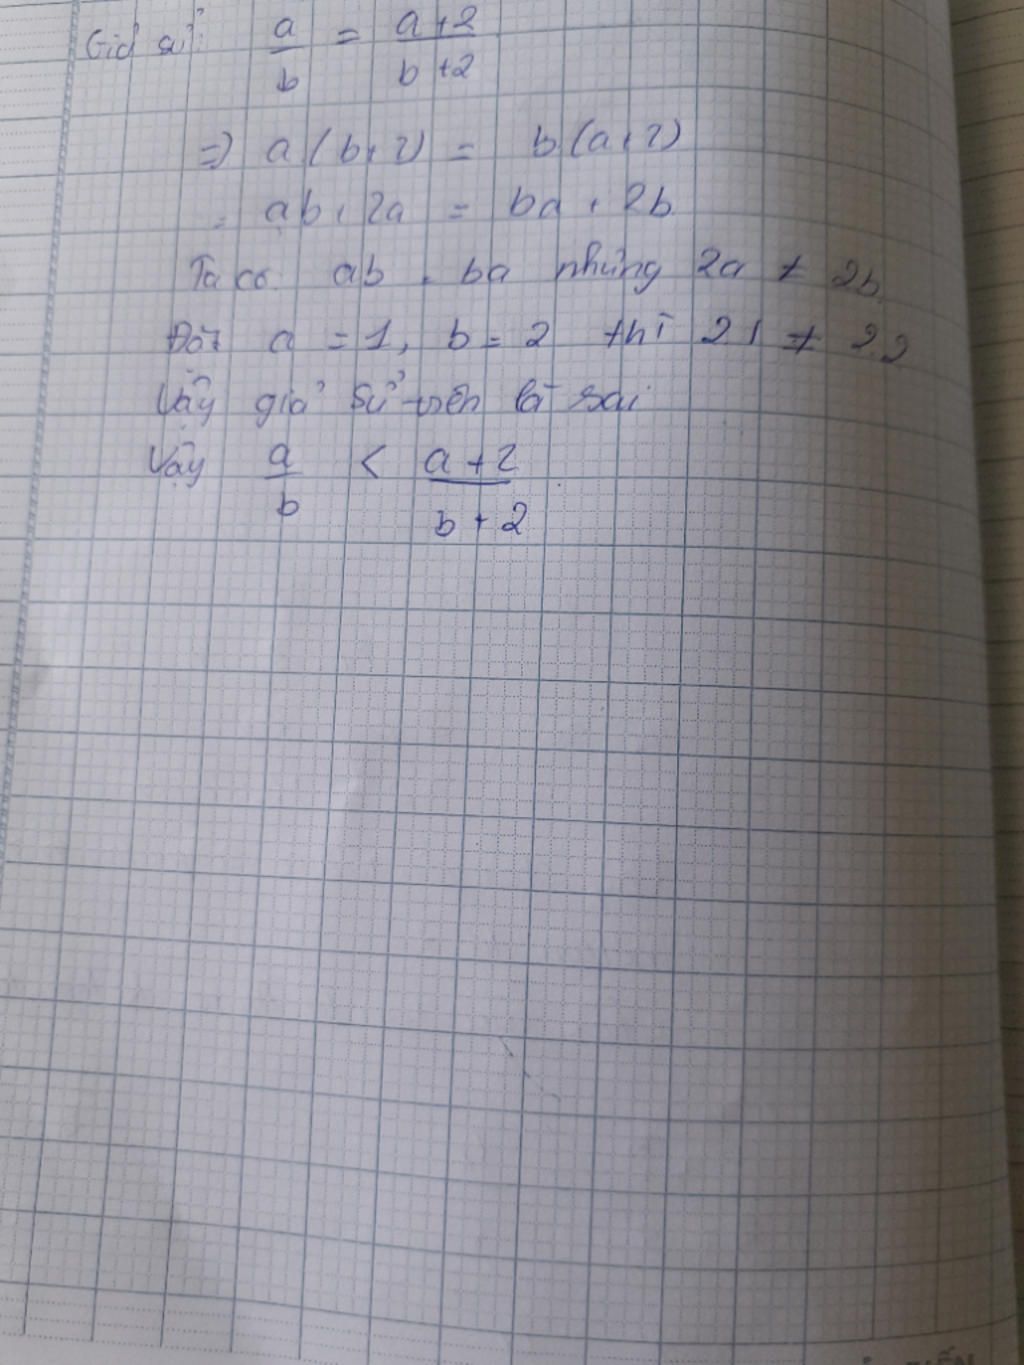 Giả sử: a/b = a+2/b+2
=> a(b+2) = b(a+2)
= ab+2a = ba+2b
Ta có ab = ba nhưng 2a ≠ 2b
Đặt a = 1, b = 2 thì 2.1 ≠ 2.2
Vậy giả sử trên là sai
Vậy a/b < a+2/b+2